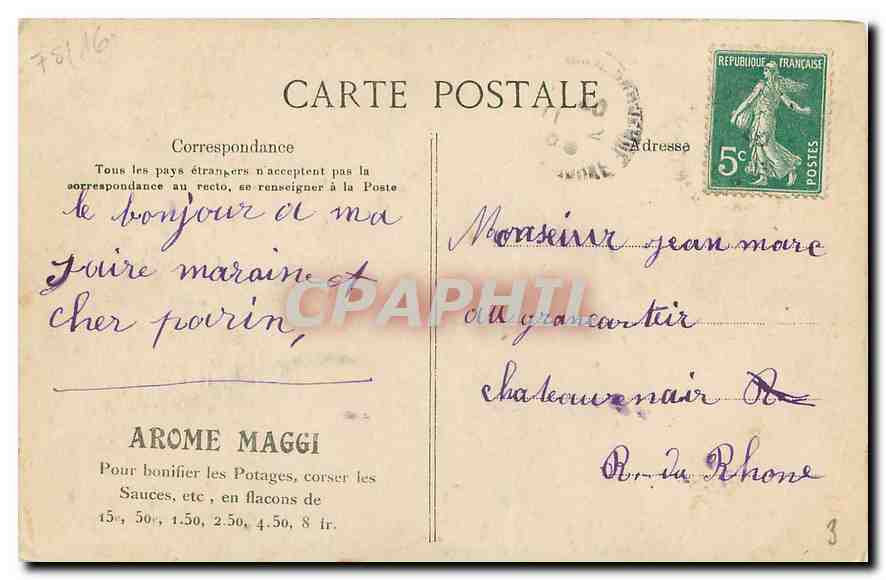 78/16
CARTE POSTALE
Correspondance
Tous les pays étrangers n'acceptent pas la
correspondance au recto, se renseigner à la Poste
le bonjour a ma
faire maraine et
cher parin,
AROME MAGGI
Pour bonifier les Potages, corser les
Sauces, etc, en flacons de
15c, 50c, 1.50, 2.50, 4.50, 8 fr.
Adresse
RÉPUBLIQUE FRANÇAISE
5c
POSTES
Monseiur jean marc
au grancarteir
chateaurenair
R. du Rhone
3
CPAPHIL